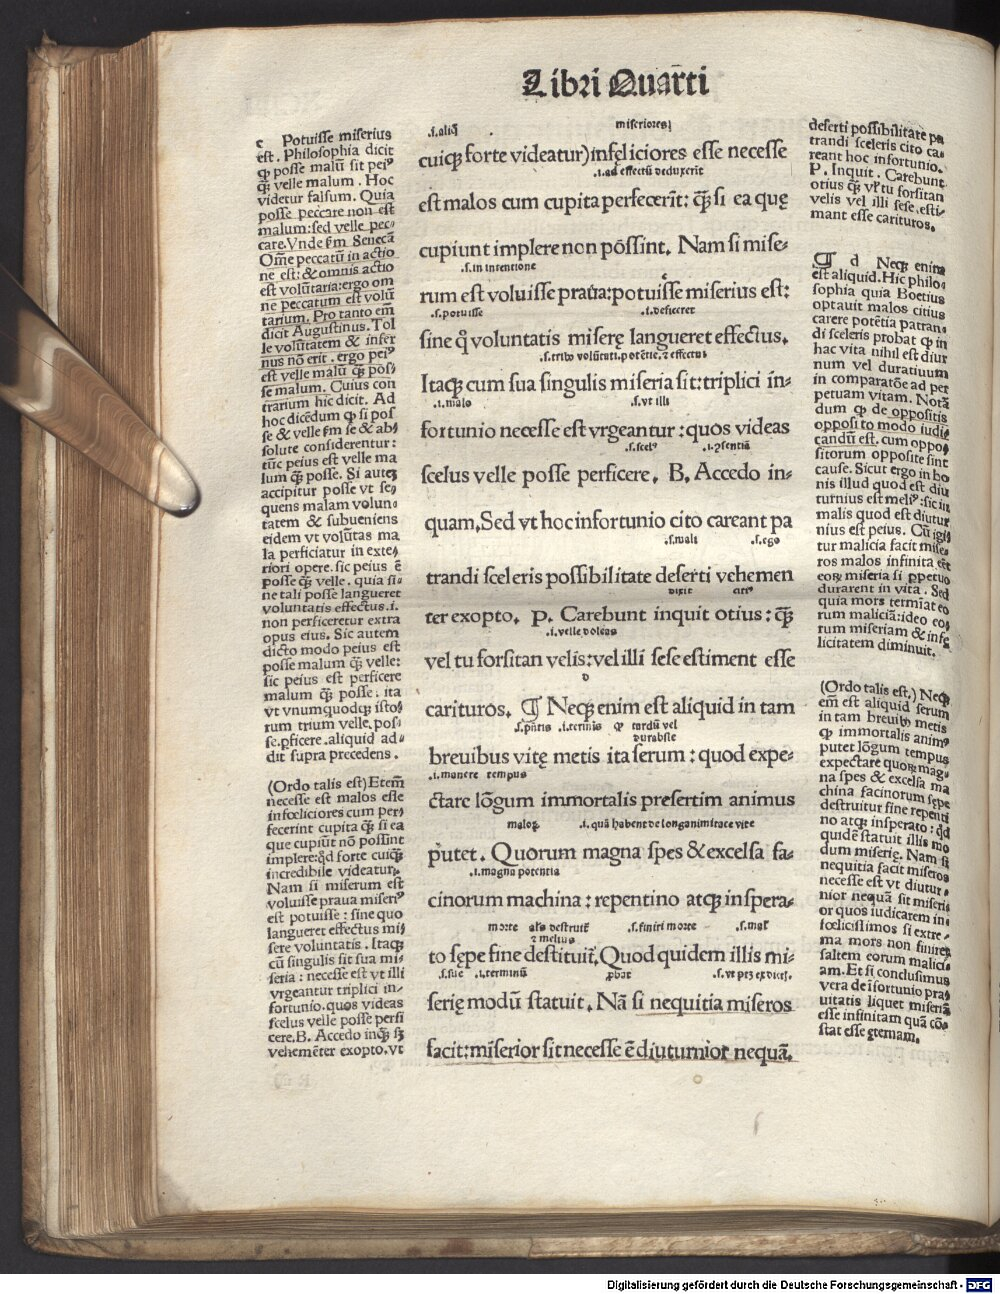 Libri Quarti
c Potuisse miserius
est. Philosophia dicit
qp posse malū sit peiꝰ
qꝫ velle malum. Hoc
videtur falsum. Quia
posse peccare non est
malum: sed velle pec-
care. Vnde ẜm Senecā
Oīne peccatū in actio
ne est: & omnis actio
est volūtaria: ergo om
ne peccatum est volū
tarium. Pro tanto em̄
dicit Augustinus. Tol
le volūtatem & infer
nus nō erit. ergo peiꝰ
est velle malū qꝫ pos/
se malum. Cuius con
trarium hic dicit. Ad
hoc dicēdum qp si pos
se & velle ẜm se & ab/
solute considerentur:
tūc peius est velle ma
lum qꝫ posse. Si autez
accipitur posse vt se/
quens malam volun/
tatem & subueniens
eidem vt volūtas ma
la perficiatur in exte/
riori opere. sic peius ē
posse qꝫ velle. quia si/
ne tali posse langueret
voluntatis effectus .i.
non perficeretur extra
opus eius. Sic autem
dicto modo peius est
posse malum qꝫ velle:
sic peius est perficere
malum qꝫ posse. ita
vt vnumquodqꝫ isto/
rum trium velle. pos/
se. pficere. aliquid ad/
dit supra precedens.
(Ordo talis est) Etem̄
necesse est malos esse
infœliciores cum per/
fecerint cupita qꝫ si ea
que cupiūt nō possint
implere: qd forte cuiqꝫ
incredibile videatur.
Nam si miserum est
voluisse praua miseriꝰ
est potuisse: sine quo
langueret effectus mi/
sere voluntatis. Itaqꝫ
cū singulis sit sua mi/
seria: necesse est vt illi
vrgeantur triplici in/
fortunio. quos videas
scelus velle posse perfi
cere. B. Accedo inqꝫ sꝫ
vehemēter exopto. vt
.s. aliq̄ miseriores
cuiqꝫ forte videatur) infęliciores esse necesse
.i. ad effectū deduxerit
est malos cum cupita perfecerīt: qꝫ si ea quę
cupiunt implere non pōssint. Nam si mise-
.s. in intentione
rum est voluisse praua: potuisse miserius est:
.s. potuisse .i. deficeret
sine q̄ voluntatis miserę langueret effectus.
.s. trib⁹ volūtati. potētię. & effectui
Itaqꝫ cum sua singulis miseria sit: triplici in-
.i. malo .s. vt illi
fortunio necesse est vrgeantur: quos videas
.s. scelꝰ .i. ꝯsentiā
scelus velle posse perficere. B. Accedo in-
quam, Sed vt hoc infortunio cito careant pa
.s. mali .s. ego
trandi sceleris possibilitate deserti vehemen
dixit citiꝰ
ter exopto. P. Carebunt inquit otius: qꝫ
.i. velle doleas
vel tu forsitan velis: vel illi sese estiment esse
d
carituros. ¶ Neqꝫ enim est aliquid in tam
.s. pn̄tis .i. terminis qp tardū vel
durabile
breuibus vitę metis ita serum: quod expe-
.i. manere tempus
ctare lōgum immortalis presertim animus
maloꝝ .i. quā habent de longanimitate vite
putet. Quorum magna spes & excelsa fa-
.i. magna potentia
cinorum machina: repentino atqꝫ inspera-
morte aliꝰ destruit .s. finiri morte .s. malꝰ
& melius
to sępe fine destituit. Quod quidem illis mi-
.s. sue .i. terminū ꝓbat .s. vt ptꝫ ex dictꝭ.
serię modū statuit. Nā si nequitia miseros
facit: miserior sit necesse ē diuturnior nequā.
deserti possibilitate pa
trandi sceleris cito ca/
reant hoc infortunio.
P. Inquit. Carebunt
otius qꝫ vl' tu forsitan
velis vel illi sese esti-
mant esse carituros.
¶ d Neqꝫ enim
est aliquid. Hic philo/
sophia quia Boetius
optauit malos citius
carere potētia patran/
di sceleris probat qp in
hac vita nihil est diur
num vel duratiuum
in comparatōe ad per
petuam vitam. Notā
dum qp de oppositis
opposito modo iudi/
candū est. cum oppo/
sitorum opposite sint
cause. Sicut ergo in bo
nis illud quod est diu
turnius est meliꝰ: sic in
malis quod est diutur
nius est peius. Cū igi/
tur malicia facit mise/
ros malos infinita eēt
eoꝝ miseria si ppetuo
durarent in vita. Sed
quia mors termīat eo
rum maliciā: ideo eo/
rum miseriam & infe/
licitatem diminuit.
(Ordo talis est,) Neqꝫ
em̄ est aliquid serum
in tam breuibꝰ metis
qp immortalis animꝰ
putet lōgum tempus
expectare quoꝝ mag/
na spes & excelsa ma
china facinorum sępe
destruitur fine repenti
no atqꝫ insperato: qd
quidē statuit illis mo
dum miserię. Nam si
nequitia facit miseros
necesse est vt diutur/
nior nequā sit miseri
or quos iudicarem in/
fœlicissimos si extre/
ma mors non finiret
saltem eorum malici/
am. Et si conclusimus
vera de īfortunio pra/
uitatis liquet miseriā
esse infinitam quā cō/
stat esse ęternam.
Digitalisierung gefördert durch die Deutsche Forschungsgemeinschaft - DFG